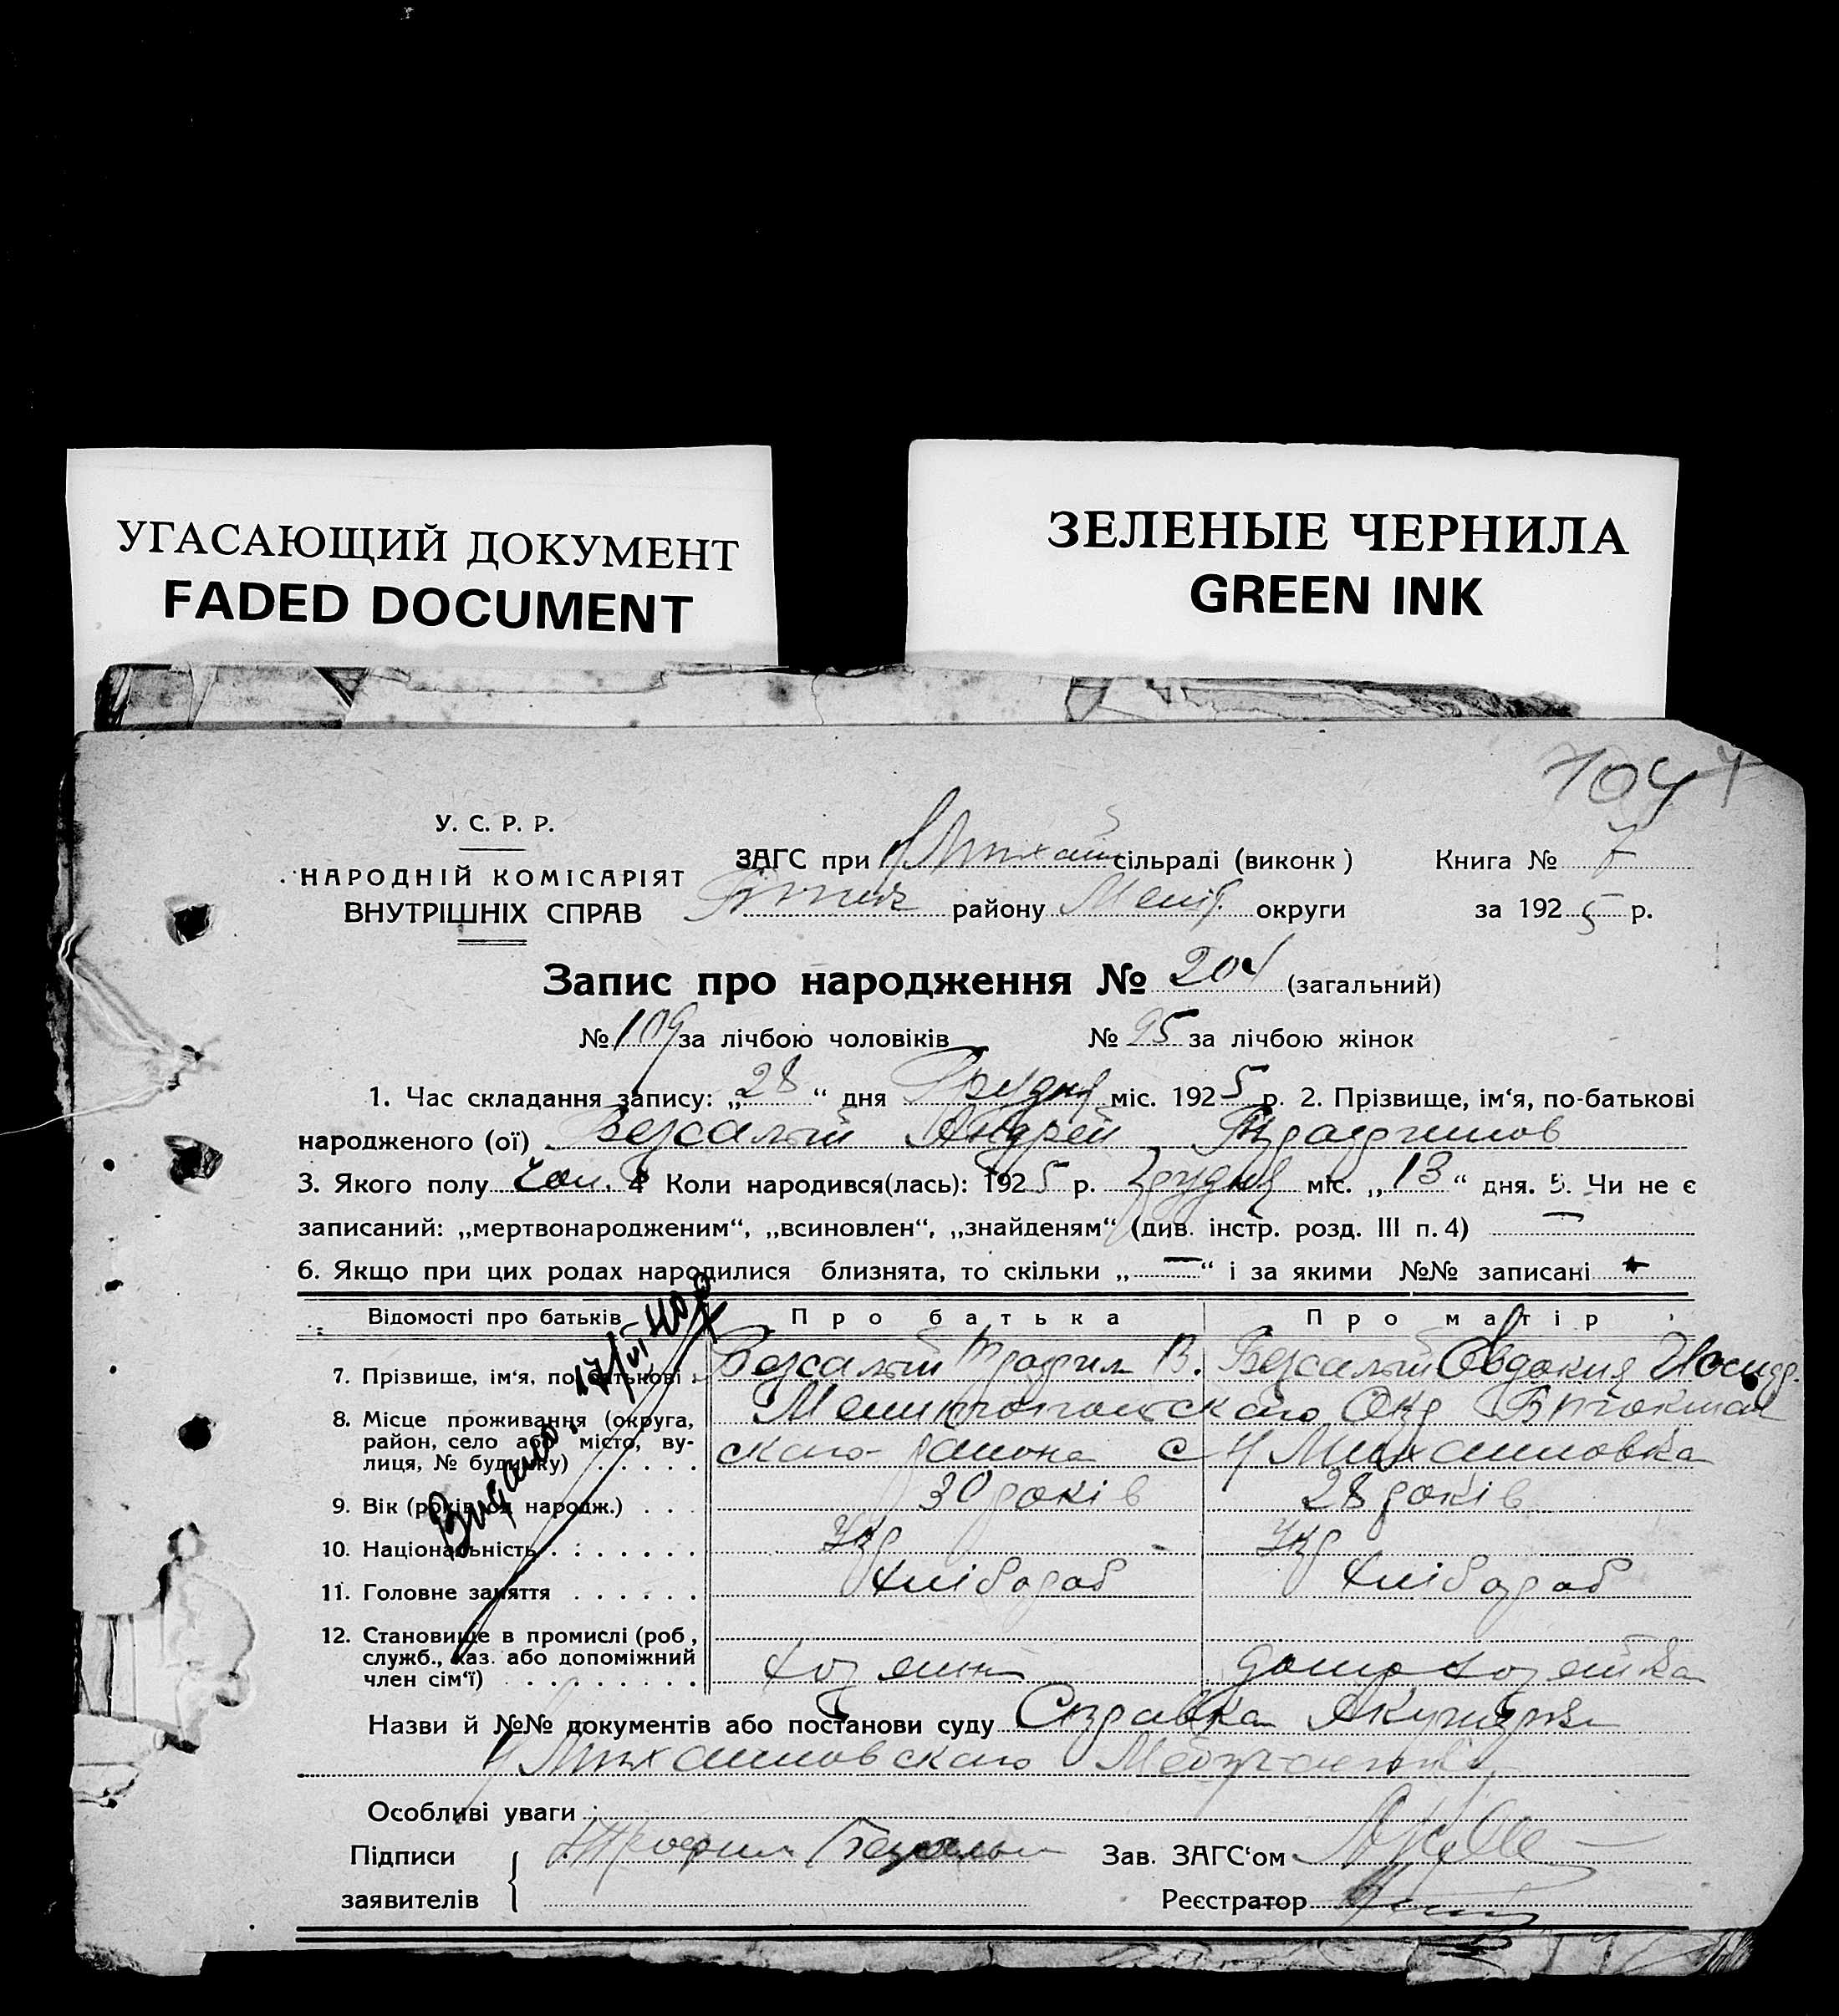 УГАСАЮЩИЙ ДОКУМЕНТ
FADED DOCUMENT
ЗЕЛЕНЫЕ ЧЕРНИЛА
GREEN INK
104
У. С. Р. Р.
НАРОДНІЙ КОМІСАРІЯТ
ВНУТРІШНІХ СПРАВ
ЗАГС при сільраді (виконк) Книга № 7
району Меліт. округи за 1925 р.
Запис про народження № 204 (загальний)
№ 109 за лічбою чоловіків № 95 за лічбою жінок
1. Час складання запису: „28“ дня Грудня міс. 1925 р. 2. Прізвище, ім‘я, по-батькові
народженого (ої) Андрей Трофимов
3. Якого полу Чол. 4 Коли народився(лась): 1925 р. Грудня міс. „13“ дня. 5. Чи не є
записаний: „мертвонародженим“, „всиновлен“, „знайденям“ (див. інстр. розд. III п. 4) —
6. Якщо при цих родах народилися близнята, то скільки „—“ і за якими №№ записані
Відомості про батьків Про батька Про матір
7. Прізвище, ім‘я, по-батькові Трофим В. Евдокия
8. Місце проживання (округа, район, село або місто, вулиця, № будинку) Мелитопольскаго Окр
скаго района с Михайловка
9. Вік (років од народж.) 30 років 28 років
10. Національність Укр Укр
11. Головне заняття Хлібороб Хлібороб
12. Становище в промислі (роб., служб., хаз. або допоміжний член сім‘ї) хозяин домохозяйка
Видано 17/VI 40 р
Назви й №№ документів або постанови суду Справка Акушерки
Михайловскаго
Особливі уваги
Підписи Трофим Зав. ЗАГС‘ом
заявителів Реєстратор